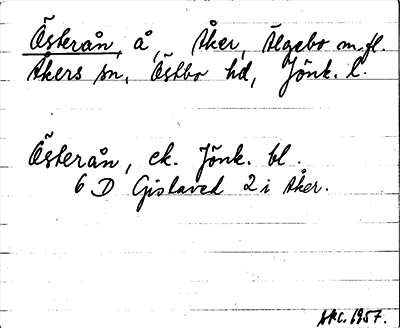 Österån, å, Åker, Älgebo m.fl.
Åkers sn, Östbo hd, Jönk. l.
Österån, ek. Jönk. bl.
6 D Gislaved 2 i Åker.
1957.